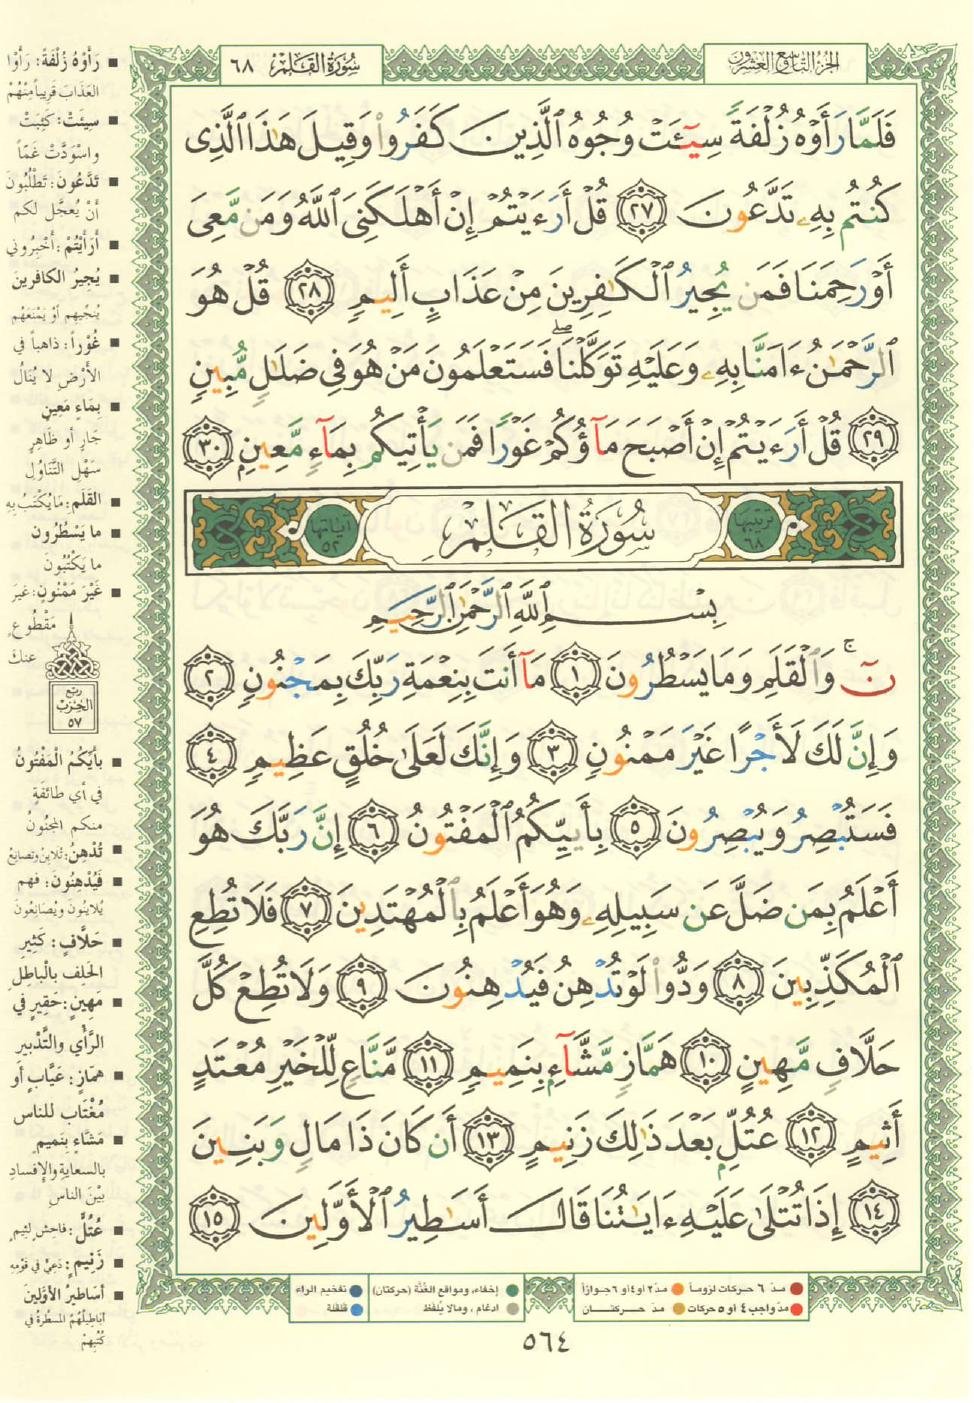 سُورَةُ القَلَمِ ٦٨
الجُزْءُ التَّاسِعُ وَالعِشْرُونَ
فَلَمَّا رَأَوْهُ زُلْفَةً سِيٓـَٔتْ وُجُوهُ ٱلَّذِينَ كَفَرُوا۟ وَقِيلَ هَٰذَا ٱلَّذِى
كُنتُم بِهِۦ تَدَّعُونَ ٢٧ قُلْ أَرَءَيْتُمْ إِنْ أَهْلَكَنِىَ ٱللَّهُ وَمَن مَّعِىَ
أَوْ رَحِمَنَا فَمَن يُجِيرُ ٱلْكَٰفِرِينَ مِنْ عَذَابٍ أَلِيمٍ ٢٨ قُلْ هُوَ
ٱلرَّحْمَٰنُ ءَامَنَّا بِهِۦ وَعَلَيْهِ تَوَكَّلْنَا ۖ فَسَتَعْلَمُونَ مَنْ هُوَ فِى ضَلَٰلٍ مُّبِينٍ
٢٩ قُلْ أَرَءَيْتُمْ إِنْ أَصْبَحَ مَآؤُكُمْ غَوْرًا فَمَن يَأْتِيكُم بِمَآءٍ مَّعِينٍۭ ٣٠
ترتيبها ٦٨ سُورَةُ القَلَمِ آياتها ٥٢
بِسْمِ ٱللَّهِ ٱلرَّحْمَٰنِ ٱلرَّحِيمِ
نٓ ۚ وَٱلْقَلَمِ وَمَا يَسْطُرُونَ ١ مَآ أَنتَ بِنِعْمَةِ رَبِّكَ بِمَجْنُونٍ ٢
وَإِنَّ لَكَ لَأَجْرًا غَيْرَ مَمْنُونٍ ٣ وَإِنَّكَ لَعَلَىٰ خُلُقٍ عَظِيمٍ ٤
فَسَتُبْصِرُ وَيُبْصِرُونَ ٥ بِأَييِّكُمُ ٱلْمَفْتُونُ ٦ إِنَّ رَبَّكَ هُوَ
أَعْلَمُ بِمَن ضَلَّ عَن سَبِيلِهِۦ وَهُوَ أَعْلَمُ بِٱلْمُهْتَدِينَ ٧ فَلَا تُطِعِ
ٱلْمُكَذِّبِينَ ٨ وَدُّوا۟ لَوْ تُدْهِنُ فَيُدْهِنُونَ ٩ وَلَا تُطِعْ كُلَّ
حَلَّافٍ مَّهِينٍ ١٠ هَمَّازٍ مَّشَّآءٍۭ بِنَمِيمٍ ١١ مَّنَّاعٍ لِّلْخَيْرِ مُعْتَدٍ
أَثِيمٍ ١٢ عُتُلٍّۭ بَعْدَ ذَٰلِكَ زَنِيمٍ ١٣ أَن كَانَ ذَا مَالٍ وَبَنِينَ
١٤ إِذَا تُتْلَىٰ عَلَيْهِ ءَايَٰتُنَا قَالَ أَسَٰطِيرُ ٱلْأَوَّلِينَ ١٥
رَأَوْهُ زُلْفَةً: رَأَوْا
العَذَابَ قَرِيباً مِنْهُمْ
سِيئَتْ: كَئِبَتْ
واسْوَدَّتْ غَمّاً
تَدَّعُونَ: تَطْلُبُونَ
أَنْ يُعَجَّلَ لكم
أَرَأَيْتُمْ: أَخْبِرُوني
يُجِيرُ الكافرين
يُنَجِّيهِم أَوْ يَمْنَعُهُم
غَوْراً: ذاهباً في
الأَرْضِ لا يُنَالُ
بِمَاءٍ مَعِينٍ
جَارٍ أو ظَاهِرٍ
سَهْلِ التَّنَاوُلِ
القَلَم: مَا يُكْتَبُ بِهِ
ما يَسْطُرُون
ما يَكْتُبُون
غَيْرَ مَمْنُونٍ: غيرَ
مَقْطُوعٍ
عنك
ربع الحزب ٥٧
بأَيِّكُمُ الْمَفْتُونُ
في أي طائفةٍ
منكم المجنُونُ
تُدْهِنُ: تُلايِنُ وتُصانِعُ
فَيُدْهِنُون: فهم
يُلايِنُون ويُصانِعُون
حَلَّافٍ: كَثِيرِ
الحَلِفِ بالْباطِلِ
مَهِينٍ: حَقِيرٍ في
الرَّأْيِ والتَّدْبِيرِ
هَمَّازٍ: عَيَّابٍ أو
مُغْتَابٍ للناس
مَشَّاءٍ بِنَمِيمٍ
بالسعايةِ والإِفسادِ
بَيْنَ الناسِ
عُتُلٍّ: فاحشٍ لئيمٍ
زَنِيمٍ: دَعِيٍّ في قَوْمِهِ
أَسَاطِيرُ الأَوَّلِينَ
أباطِيلُهُمُ المسَطَّرَةُ في
كُتُبِهِمْ
مدّ ٦ حركات لزوماً مدّ ٢ او ٤ او ٦ جوازاً إخفاء، ومواقع الغُنَّة (حركتان) تفخيم الراء
مدّ واجب ٤ أو ٥ حركات مدّ حركتان ادغام، ومالا يُلفَظ قلقلة
٥٦٤